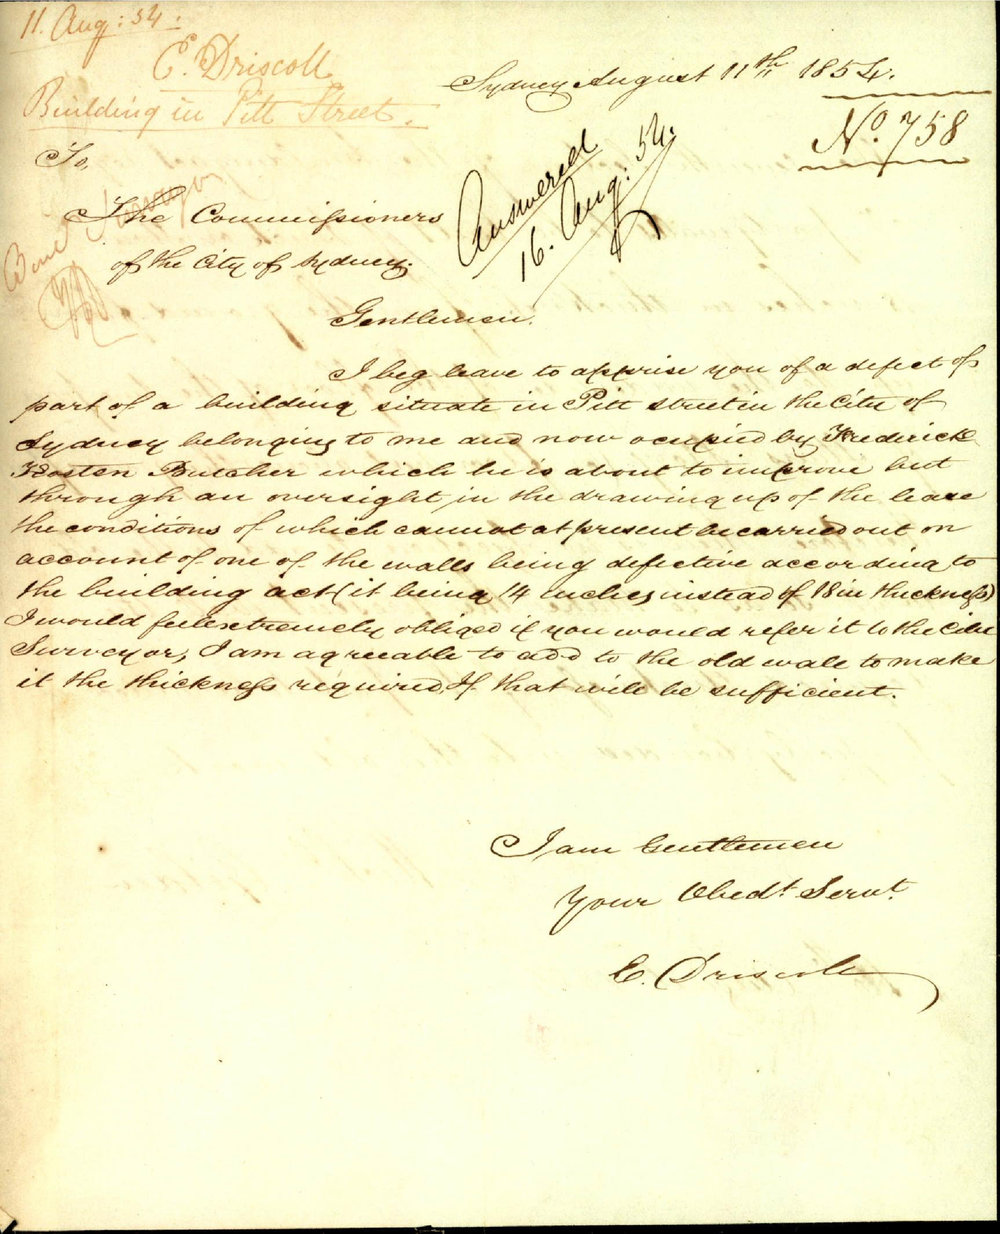 11. Aug: 54:
E. Driscoll
Building in Pitt Street.
Sydney August 11th 1854.
No. 758
To,
The Commissioners
of the City of Sydney.
Answered
16. Aug: 54.
Gentlemen.
I beg leave to apprise you of a defect of
part of a building situate in Pitt street in the City of
Sydney belonging to me and now ocupied by Frederick
Butcher which he is about to improve but
through an oversight in the drawing up of the lease
the conditions of which cannot at present be carried out on
account of one of the walls being defective according to
the building act (it being 14 inches instead of 18 in thickness)
I would feel extremely obliged if you would refer it to the City
Surveyor, I am agreeable to add to the old wall to make
it the thickness required, If that will be sufficient.
I am Gentlemen
Your Obedt. Servt.
E. Driscoll